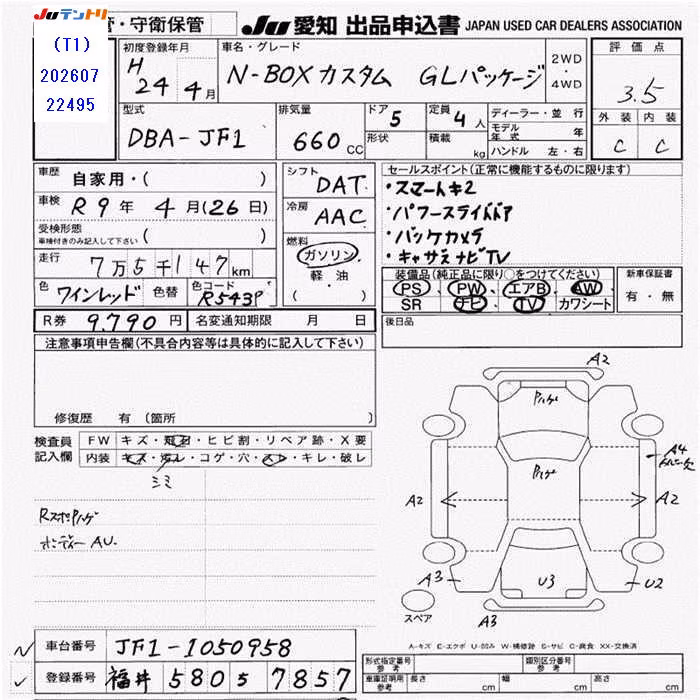 Juテントリ
管・守衛保管
Ju 愛知 出品申込書 JAPAN USED CAR DEALERS ASSOCIATION
(T1)
202607
22495
初度登録年月
H 24 4月
車名・グレード
N-BOXカスタム GLパッケージ
2WD
・
4WD
評価点
3.5
外装 内装
C C
型式
DBA-JF1
排気量
660 CC
ドア 5
形状
定員 4人
積載 kg
ディーラー・並行
モデル年式 年
ハンドル 左・右
車歴 自家用・( )
車検 R9年 4月(26日)
受検形態
車検付きのみ記入して下さい ( )
走行 7万5千147km
色 ワインレッド 色替 色コード R543P
シフト DAT
冷房 AAC
燃料
ガソリン
・
軽・油
( )
セールスポイント(正常に機能するものに限ります)
・スマートキ2
・パワースライドドア
・バックカメラ
・キャサスナビTV
装備品(純正品に限り○をつけてください)
PS PW エアB AW
SR ナビ TV カワシート
新車保証書
有・無
R券 9,790円 名変通知期限 月 日
後日品
注意事項申告欄(不具合内容等は具体的に記入して下さい)
修復歴 有(箇所
検査員記入欄
FW キズ・飛石・ヒビ割・リペア跡・X要
内装 キズ・汚レ・コゲ・穴・スレ・キレ・破レ
ミミ
RスポPハゲ
ボンデーAU.
A2
Pハゲ
Pハゲ
A4
A2
A2
A3
U3
U2
A3
スペア
A-キズ E-エクボ U-凹み W-補修跡 S-サビ C-腐食 XX-交換済
車台番号 JF1-1050958
登録番号 福井 580 う 7857
形式指定番号 参考
類別区分番号 参考
車庫証明用 参考
長さ cm 幅 cm 高さ cm